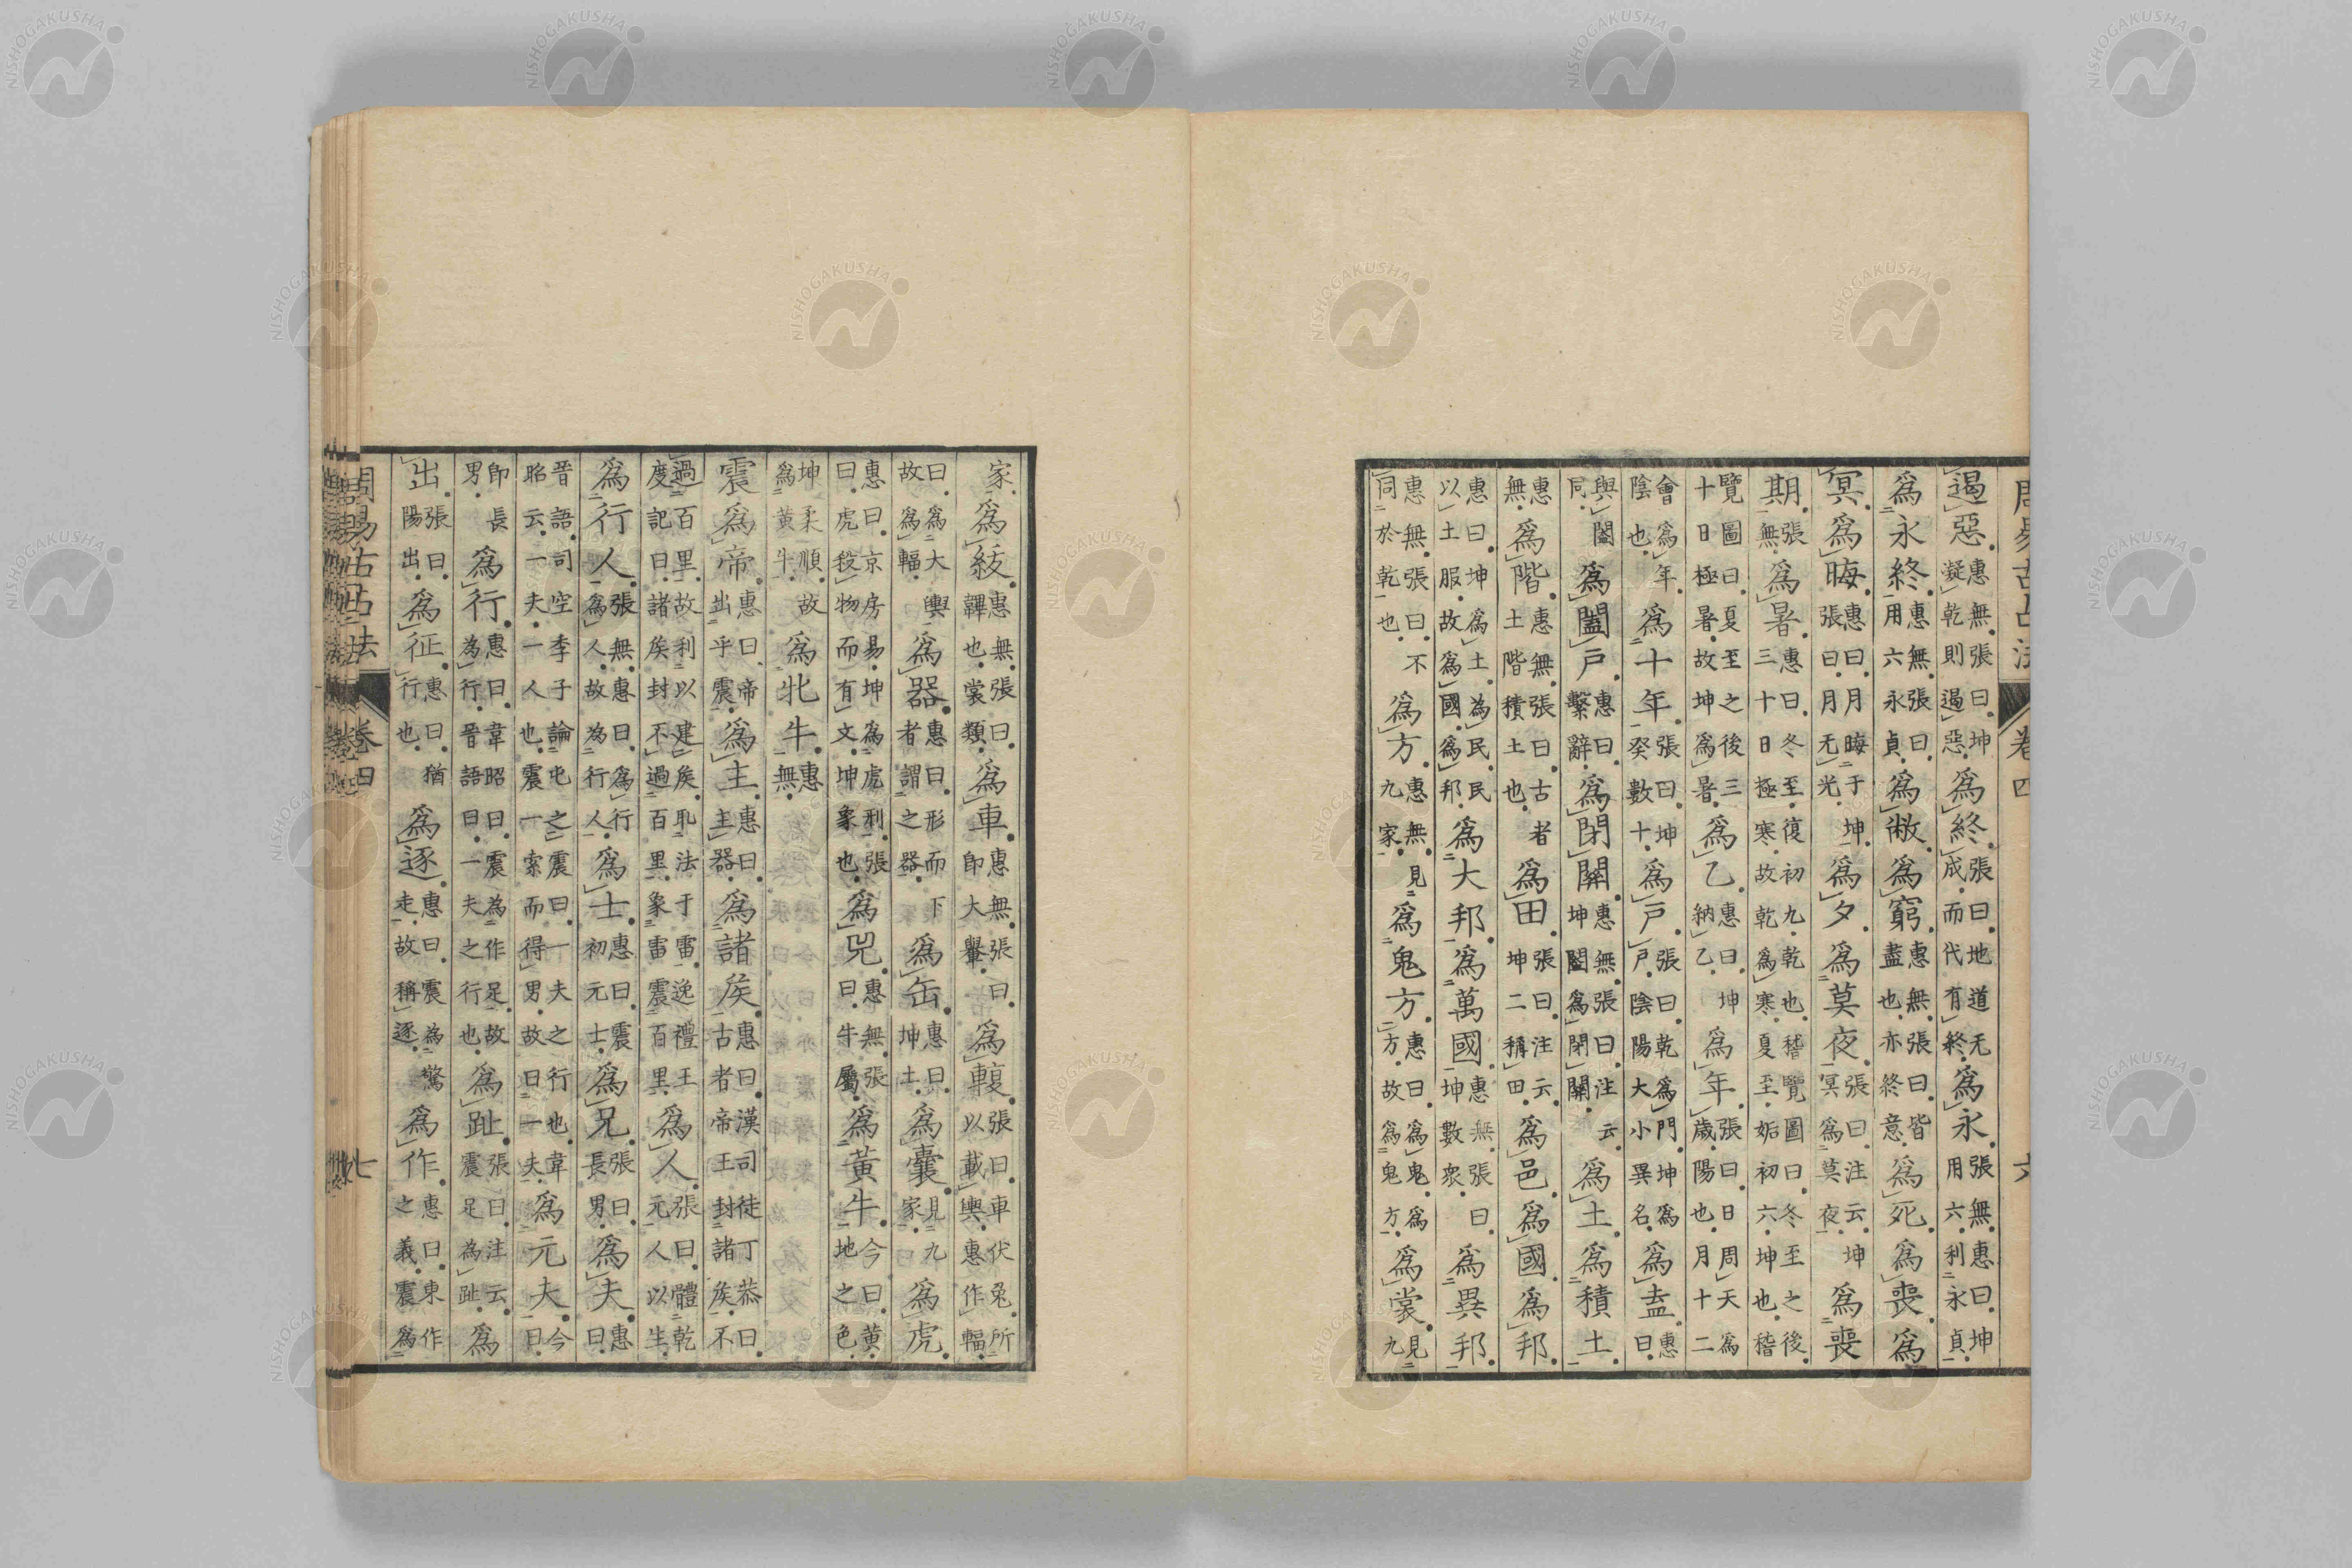 周易古占法 卷四 六
遏惡惠無張曰坤凝乾則遏惡爲終張曰地道无成而代有終爲永張無惠曰坤用六利永貞
爲永終惠無張曰用六永貞爲敝爲窮惠無張曰皆盡也亦終意爲死爲喪爲
冥爲晦惠曰月晦于坤張曰月无光爲夕爲莫夜張曰注云坤冥爲莫夜爲喪
期張無爲暑惠曰冬至復初九乾也稽覽圖曰冬至之後三十日極寒故乾爲寒夏至姤初六坤也稽
覽圖曰夏至之後三十日極暑故坤爲暑爲乙惠曰坤納乙爲年張曰日周天爲歲陽也月十二
會爲年陰也爲十年張曰坤癸數十爲戶張曰乾爲門坤爲戶陰陽大小異名爲盍惠曰
與闔同爲闔戶惠曰繫辭爲閉關惠無張曰注云坤闔爲閉關爲土爲積土
惠無爲階惠無張曰古者土階積土也爲田張曰注云坤二稱田爲邑爲國爲邦
惠曰坤爲土為民民以土服故爲國爲邦爲大邦爲萬國惠無張曰坤數衆爲異邦
惠無張曰不同於乾也爲方惠無見九家爲鬼方惠曰爲鬼爲方故爲鬼方爲裳見九
家爲紱惠無張曰韠也裳類爲車惠無張曰即大轝爲輹張曰車伏兔所以載輿惠作輻
曰爲大輿故爲輻爲器惠曰形而下者謂之器爲缶惠曰坤土爲囊見九家爲虎
惠曰京房易坤爲虎刑張曰虎殺物而有文坤象也爲兕惠無張曰牛屬爲黃牛今曰黃地之色
坤柔順故爲黃牛爲牝牛惠無
震爲帝惠曰帝出乎震爲主惠曰主器爲諸矦惠曰漢司徒丁恭曰古者帝王封諸矦不
過百里故利以建矦取法于雷逸禮王度記曰諸矦封不過百里象雷震百里爲人張曰體乾元人以生
爲行人張無惠曰爲行爲人故為行人爲士惠曰震初元士爲兄張曰長男爲夫惠曰
晉語司空季子論屯之震曰一夫之行也韋昭云一夫一人也震一索而得男故曰一夫爲元夫今曰
即長男爲行惠曰韋昭曰震為作足故為行晉語曰一夫之行也爲趾張曰注云震足為趾爲
出張曰陽出爲征惠曰猶行也爲逐惠曰震為驚走故稱逐爲作惠曰東作之義震爲
周易古占法 卷四 七
NISHOGAKUSHA